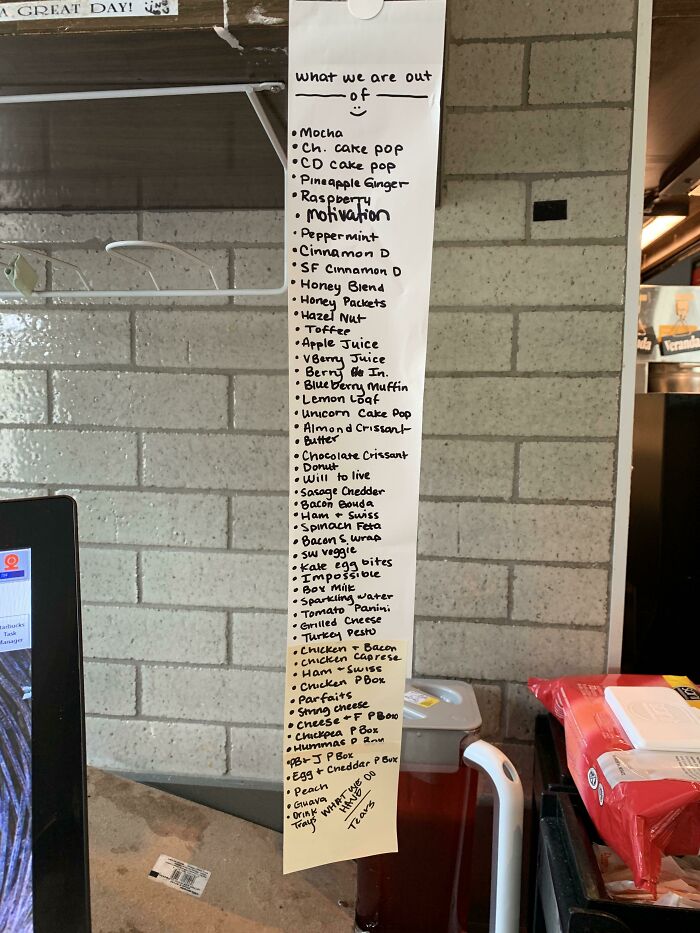 A GREAT DAY!
What we are out
of
• Mocha
• Ch. cake pop
• CD cake pop
• Pineapple Ginger
• Raspberry
• motivation
• Peppermint
• Cinnamon D
• SF Cinnamon D
• Honey Blend
• Honey Packets
• Hazel Nut
• Toffee
• Apple Juice
• VBerry Juice
• Berry In.
• Blueberry Muffin
• Lemon Loaf
• Unicorn Cake Pop
• Almond Crissant
• Butter
• Chocolate Crissant
• Donut
• Will to live
• Sasage Chedder
• Bacon Gouda
• Ham + Swiss
• Spinach Feta
• Bacon S wrap
• SW veggie
• Kale egg bites
• Impossible
• Box Milk
• Sparkling water
• Tomato Panini
• Grilled Cheese
• Turkey Pesto
• Chicken + Bacon
• Chicken Caprese
• Ham + Swiss
• Chicken PBox
• Parfaits
• String cheese
• Cheese + F PBox
• Chickpea P Box
• Hummas P
• PB + J P Box
• Egg + Cheddar P Box
• Peach
• Guava
• Drink
Trays
WHAT WE
HAVE DO
Tears
Starbucks
Task
Manager
Veranda